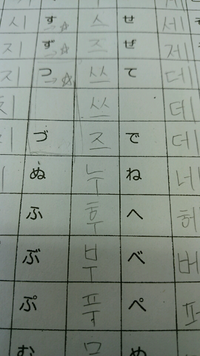 시 す 스 せ 세
지 ず 즈 ぜ 제
つ 쓰 て 데
쓰 데
づ 즈 で 데
ぬ 누 ね 너
ふ 후 へ
ぶ 부 べ
ぷ 푸 ぺ
む